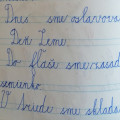 Dnes sme oslavova
Deň Zeme.
Do fľaše sme nasad
semienko.
V triede sme skladal